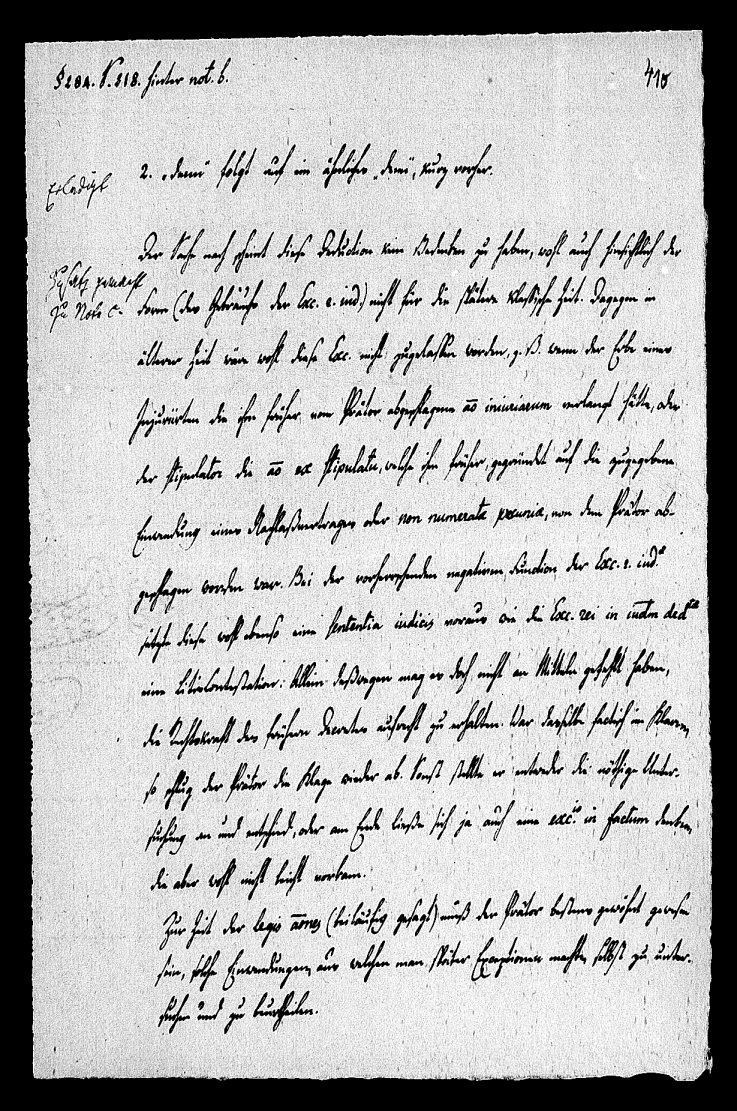 § 284. S. 218. hinter not. b.
410
2. „denn“ folgt auf ein ähnliches „denn“, kurz vorher.
Erledigt
Der Sache nach scheint diese Deduction kein Bedenken zu haben, wohl auch hinsichtlich der
Zusatz
zu Note c.
Form (des Gebrauchs der Exc. r. iud.) nicht für die spätere klassische Zeit. Dagegen in
älterer Zeit wäre wohl diese Exc. nicht zugelassen worden, z. B. wenn der Erbe eines
Injuriirten die ihm früher vom Prätor abgeschlagene ao iniuriarum verlangt hätte, oder
der Stipulator die ao ex stipulatu, welche ihm früher, gegründet auf die zugegebene
Einwendung eines Nachlaßvertrages oder non numerata pecunia, von dem Prätor ab-
geschlagen worden war. Bei der vorherrschenden negativen Function der Exc. r. iud.
setzte diese wohl ebenso eine sententia iudicis voraus wie die Exc. rei in iudm ded
eine Litiscontestation: Allein deßwegen mag es doch nicht an Mitteln gefehlt haben,
die Rechtskraft des frühern Decretes aufrecht zu erhalten. War dasselbe factisch im Klaren,
so schlug der Prätor die Klage wieder ab. Sonst stellte er entweder die nöthige Unter-
suchung an und entschied, oder am Ende ließe sich ja auch eine exc. in factum denken,
die aber wohl nicht leicht vorkam.
Zur Zeit der legis aones (beiläufig gesagt) muß der Prätor bestens gewöhnt gewesen
sein, solche Einwendungen, aus welchen man später Exceptionen machte, selbst zu unter-
suchen und zu beurtheilen.